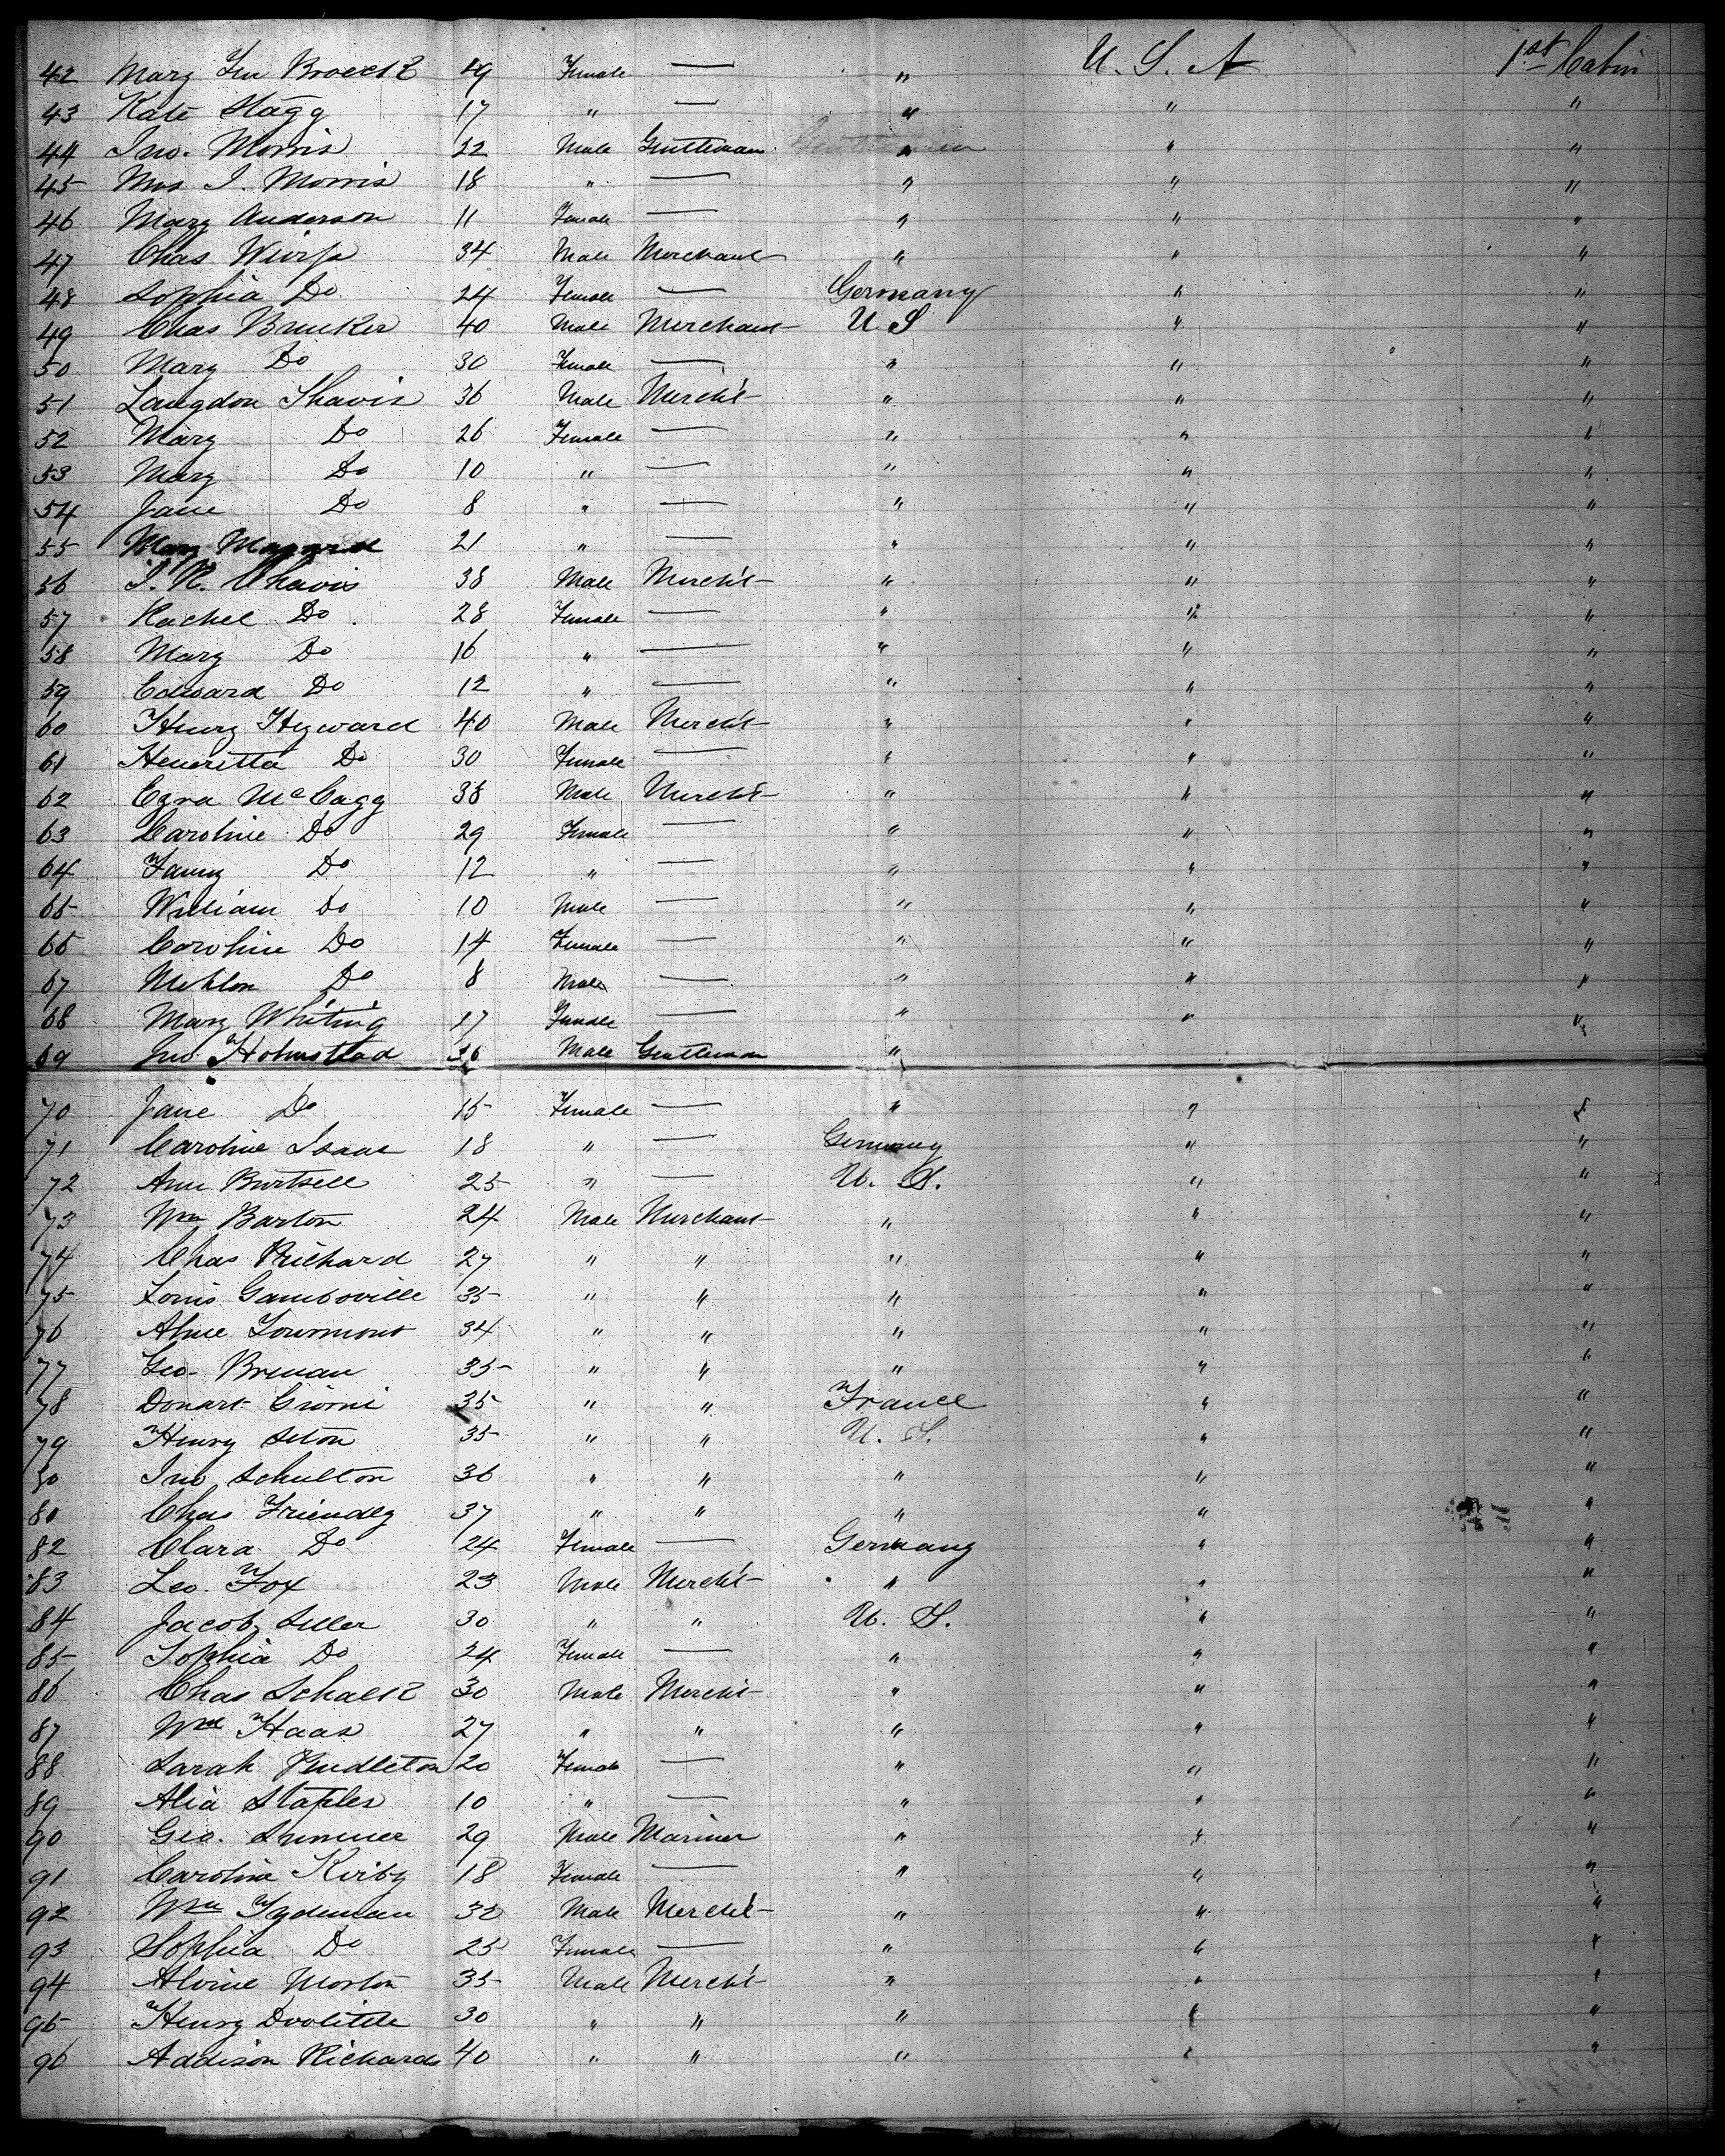 42 Mary Ten Broeck 19 Female — " U. S. A 1st Cabin
43 Kate Stagg 17 " — " " "
44 Jno. Morris 22 Male Gentleman " " "
45 Mrs J. Morris 18 " — " " "
46 Mary Anderson 11 Female — " " "
47 Chas 34 Male Merchant " " "
48 Sophia Do 24 Female — Germany " "
49 Chas Brucker 40 Male Merchant U S " "
50 Mary Do 30 Female — " " "
51 Langdon 36 Male Mercht " " "
52 Mary Do 26 Female — " " "
53 Mary Do 10 " — " " "
54 Jane Do 8 " — " " "
55 Mary 21 " — " " "
56 J. R. Chavis 38 Male Mercht " " "
57 Rachel Do 28 Female — " " "
58 Mary Do 16 " — " " "
59 Edward Do 12 " — " " "
60 Henry Heyward 40 Male Mercht " " "
61 Henritta Do 30 Female — " " "
62 Ezra McCagg 38 Male Mercht " " "
63 Caroline Do 29 Female — " " "
64 Fanny Do 12 " — " " "
65 William Do 10 Male — " " "
66 Caroline Do 14 Female — " " "
67 Do 8 Male — " " "
68 Mary Whiting 17 Female — " " "
69 Jno Holmstead 36 Male Gentleman " " "
70 Jane Do 15 Female — " " "
71 Caroline Isaac 18 " — Germany " "
72 Ann Burtsell 25 " — U. S. " "
73 Wm Barton 24 Male Merchant " " "
74 Chas Richard 27 " " " " "
75 Louis Gamboville 35 " " " " "
76 34 " " " " "
77 Geo. Brenan 35 " " " " "
78 35 " " France " "
79 Henry Seton 35 " " U. S. " "
80 Jno Schulton 36 " " " " "
80 Chas Friendly 37 " " " " "
82 Clara Do 24 Female — Germany " "
83 Leo. Fox 23 Male Mercht " " "
84 Jacob Seller 30 " " U. S. " "
85 Sophia Do 24 Female — " " "
86 Chas 30 Male Mercht " " "
87 Wm Haas 27 " " " " "
88 Sarah Pendleton 20 Female — " " "
89 Alia Staples 10 " — " " "
90 Geo. Sumner 29 Male Mariner " " "
91 Caroline Kirby 18 Female — " " "
92 Wm Tydeman 32 Male Mercht " " "
93 Sophia Do 25 Female — " " "
94 Morton 35 Male Mercht " " "
95 Henry Doolittle 30 " " " " "
96 Addison Richards 40 " " " " "